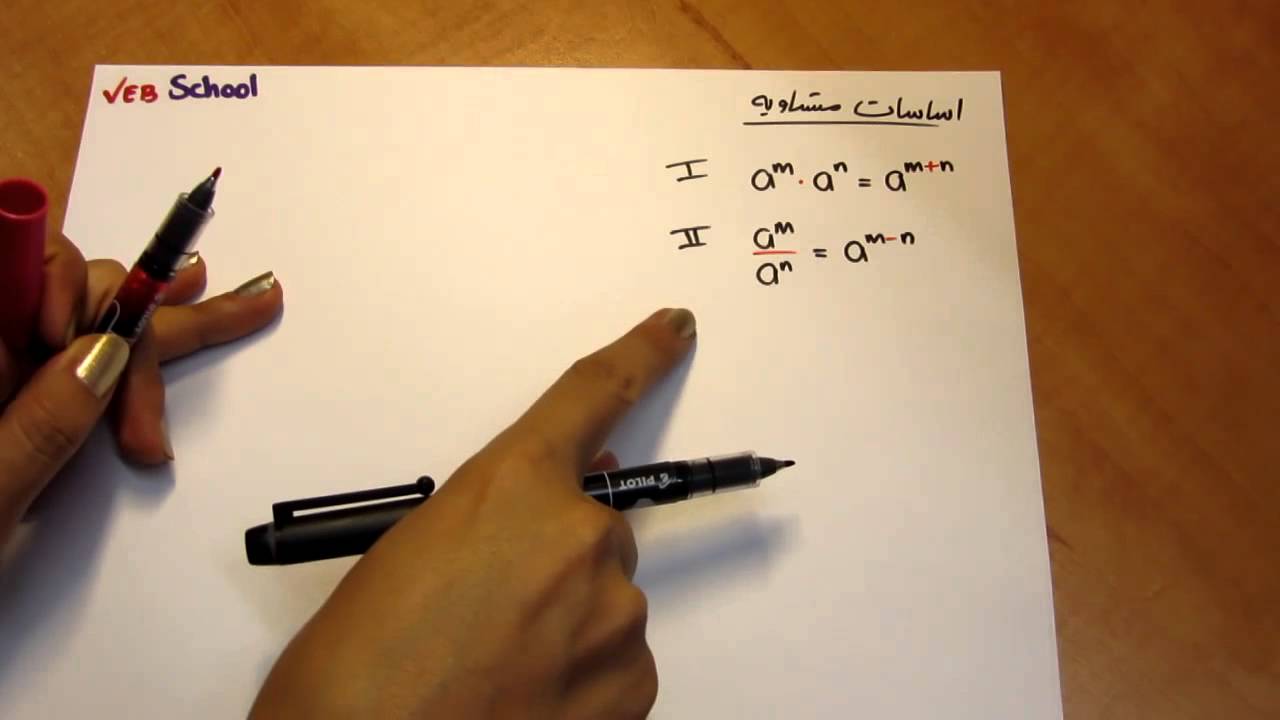 √EB School
اساسات متساويه
I a^m · a^n = a^{m+n}
II a^m / a^n = a^{m-n}
PILOT